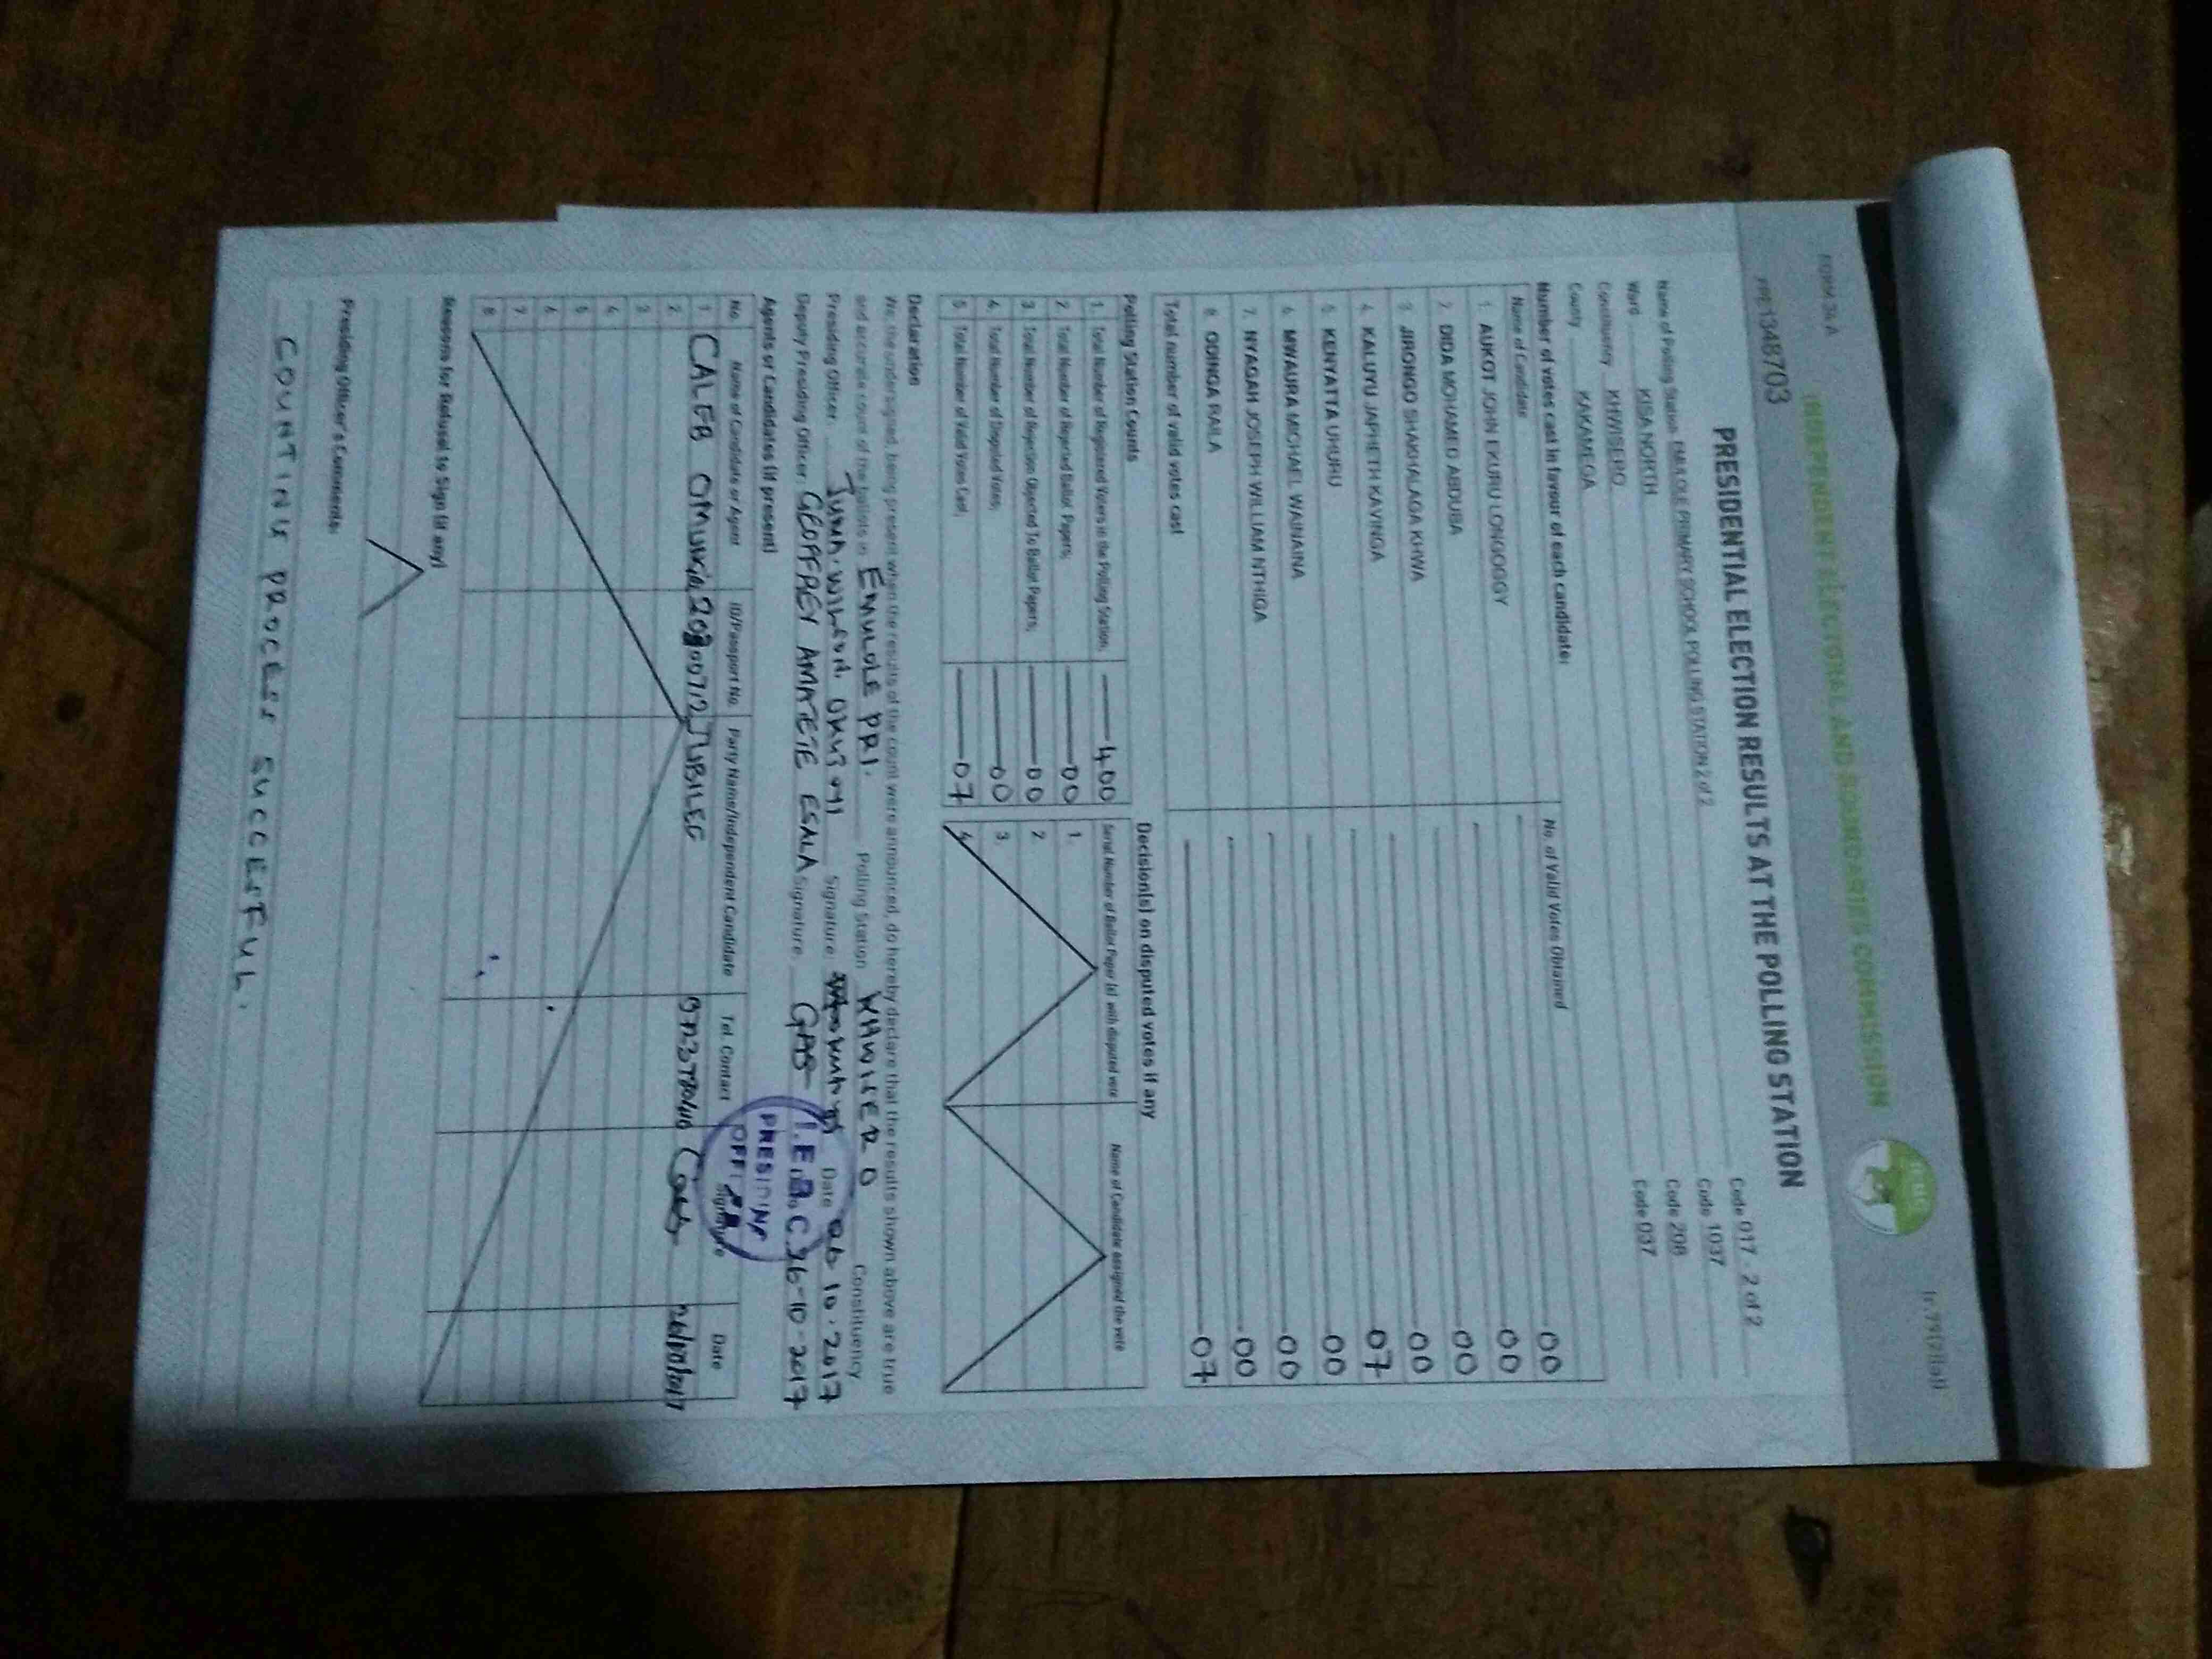 FORM 34 A
INDEPENDENT ELECTORAL AND BOUNDARIES COMMISSION
IEBC
PRE1348703
PRESIDENTIAL ELECTION RESULTS AT THE POLLING STATION
Name of Polling Station EMULOLE PRIMARY SCHOOL POLLING STATION 2 of 2 Code 017 - 2 of 2
Ward KISA NORTH Code 1037
Constituency KHWISERO Code 208
County KAKAMEGA Code 037
Number of votes cast in favour of each candidate:
Name of Candidate No. of Valid Votes Obtained
1. AUKOT JOHN EKURU LONGOGGY 00
2. DIDA MOHAMED ABDUBA 00
3. JIRONGO SHAKHALAGA KHWA 00
4. KALUYU JAPHETH KAVINGA 00
5. KENYATTA UHURU 07
6. MWAURA MICHAEL WAINAINA 00
7. NYAGAH JOSEPH WILLIAM NTHIGA 00
8. ODINGA RAILA 00
Total number of valid votes cast 07
Polling Station Counts Decision(s) on disputed votes if any
Serial Number of Ballot Paper (s) with disputed vote Name of Candidate assigned the vote
1. Total Number of Registered Voters in the Polling Station; 400 1.
2. Total Number of Rejected Ballot Papers; 00 2.
3. Total Number of Rejection Objected To Ballot Papers; 00 3.
4. Total Number of Disputed Votes; 00 4.
5. Total Number of Valid Votes Cast; 07
Declaration
We, the undersigned, being present when the results of the count were announced, do hereby declare that the results shown above are true
and accurate count of the ballots in EMULOLE PRI. Polling Station KHWISERO Constituency
Presiding Officer: JUMA WILSON Signature: Date 26 10.2017
Deputy Presiding Officer: GEOFFREY AMATETE ESALA Signature: 26-10-2017
I.E.B.C
PRESIDING
Agents or Candidates (if present)
No. Name of Candidate or Agent ID/Passport No. Party Name/Independent Candidate Tel. Contact Signature Date
1 CALEB JUBILEE 26/10/2017
2
3
4
5
6
7
8
Reasons for Refusal to Sign (if any)
Presiding Officer's Comments:
COUNTINU PROCESS SUCCESFUL.